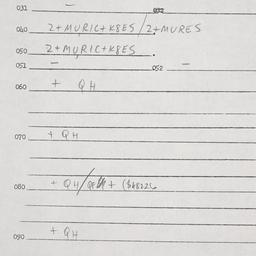 031 – 032
040 2+MURIC+K8ES/2+MURES
050 2+MURIC+K8ES
051 – 052 –
060 + QH
070 + QH
080 + QH/
090 + QH